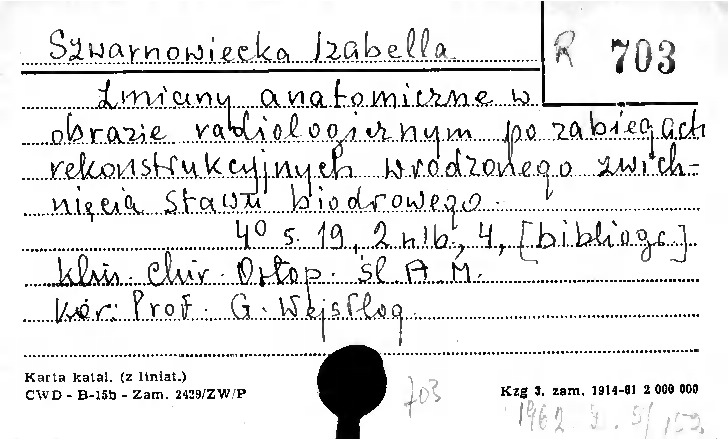 Szwarnowiecka Izabella
R 703
Zmiany anatomiczne w
obrazie radiologicznym po zabiegach
rekonstrukcyjnych wrodzonego zwich-
nięcia stawu biodrowego.
4° s. 19, 2 nlb, 4, [bibliogr.]
Klin. Chir. Ortop. Śl. A. M.
Kier: Prof. G. Wejsflog
Karta katal. (z liniat.)
CWD - B-15b - Zam. 2429/ZW/P
703
Kzg 3. zam. 1914-61 2 000 000
1962